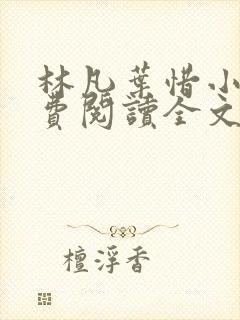 林凡葉惜小
費閱讀全文
檀浮香